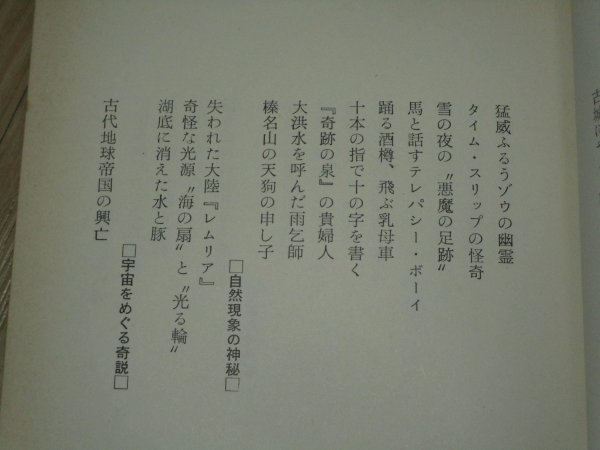 猛威ふるうゾウの幽霊
タイム・スリップの怪奇
雪の夜の〝悪魔の足跡〟
馬と話すテレパシー・ボーイ
踊る酒樽、飛ぶ乳母車
十本の指で十の字を書く
『奇跡の泉』の貴婦人
大洪水を呼んだ雨乞師
榛名山の天狗の申し子
□自然現象の神秘□
失われた大陸『レムリア』
奇怪な光源〝海の扇〟と〝光る輪〟
湖底に消えた水と豚
□宇宙をめぐる奇説□
古代地球帝国の興亡